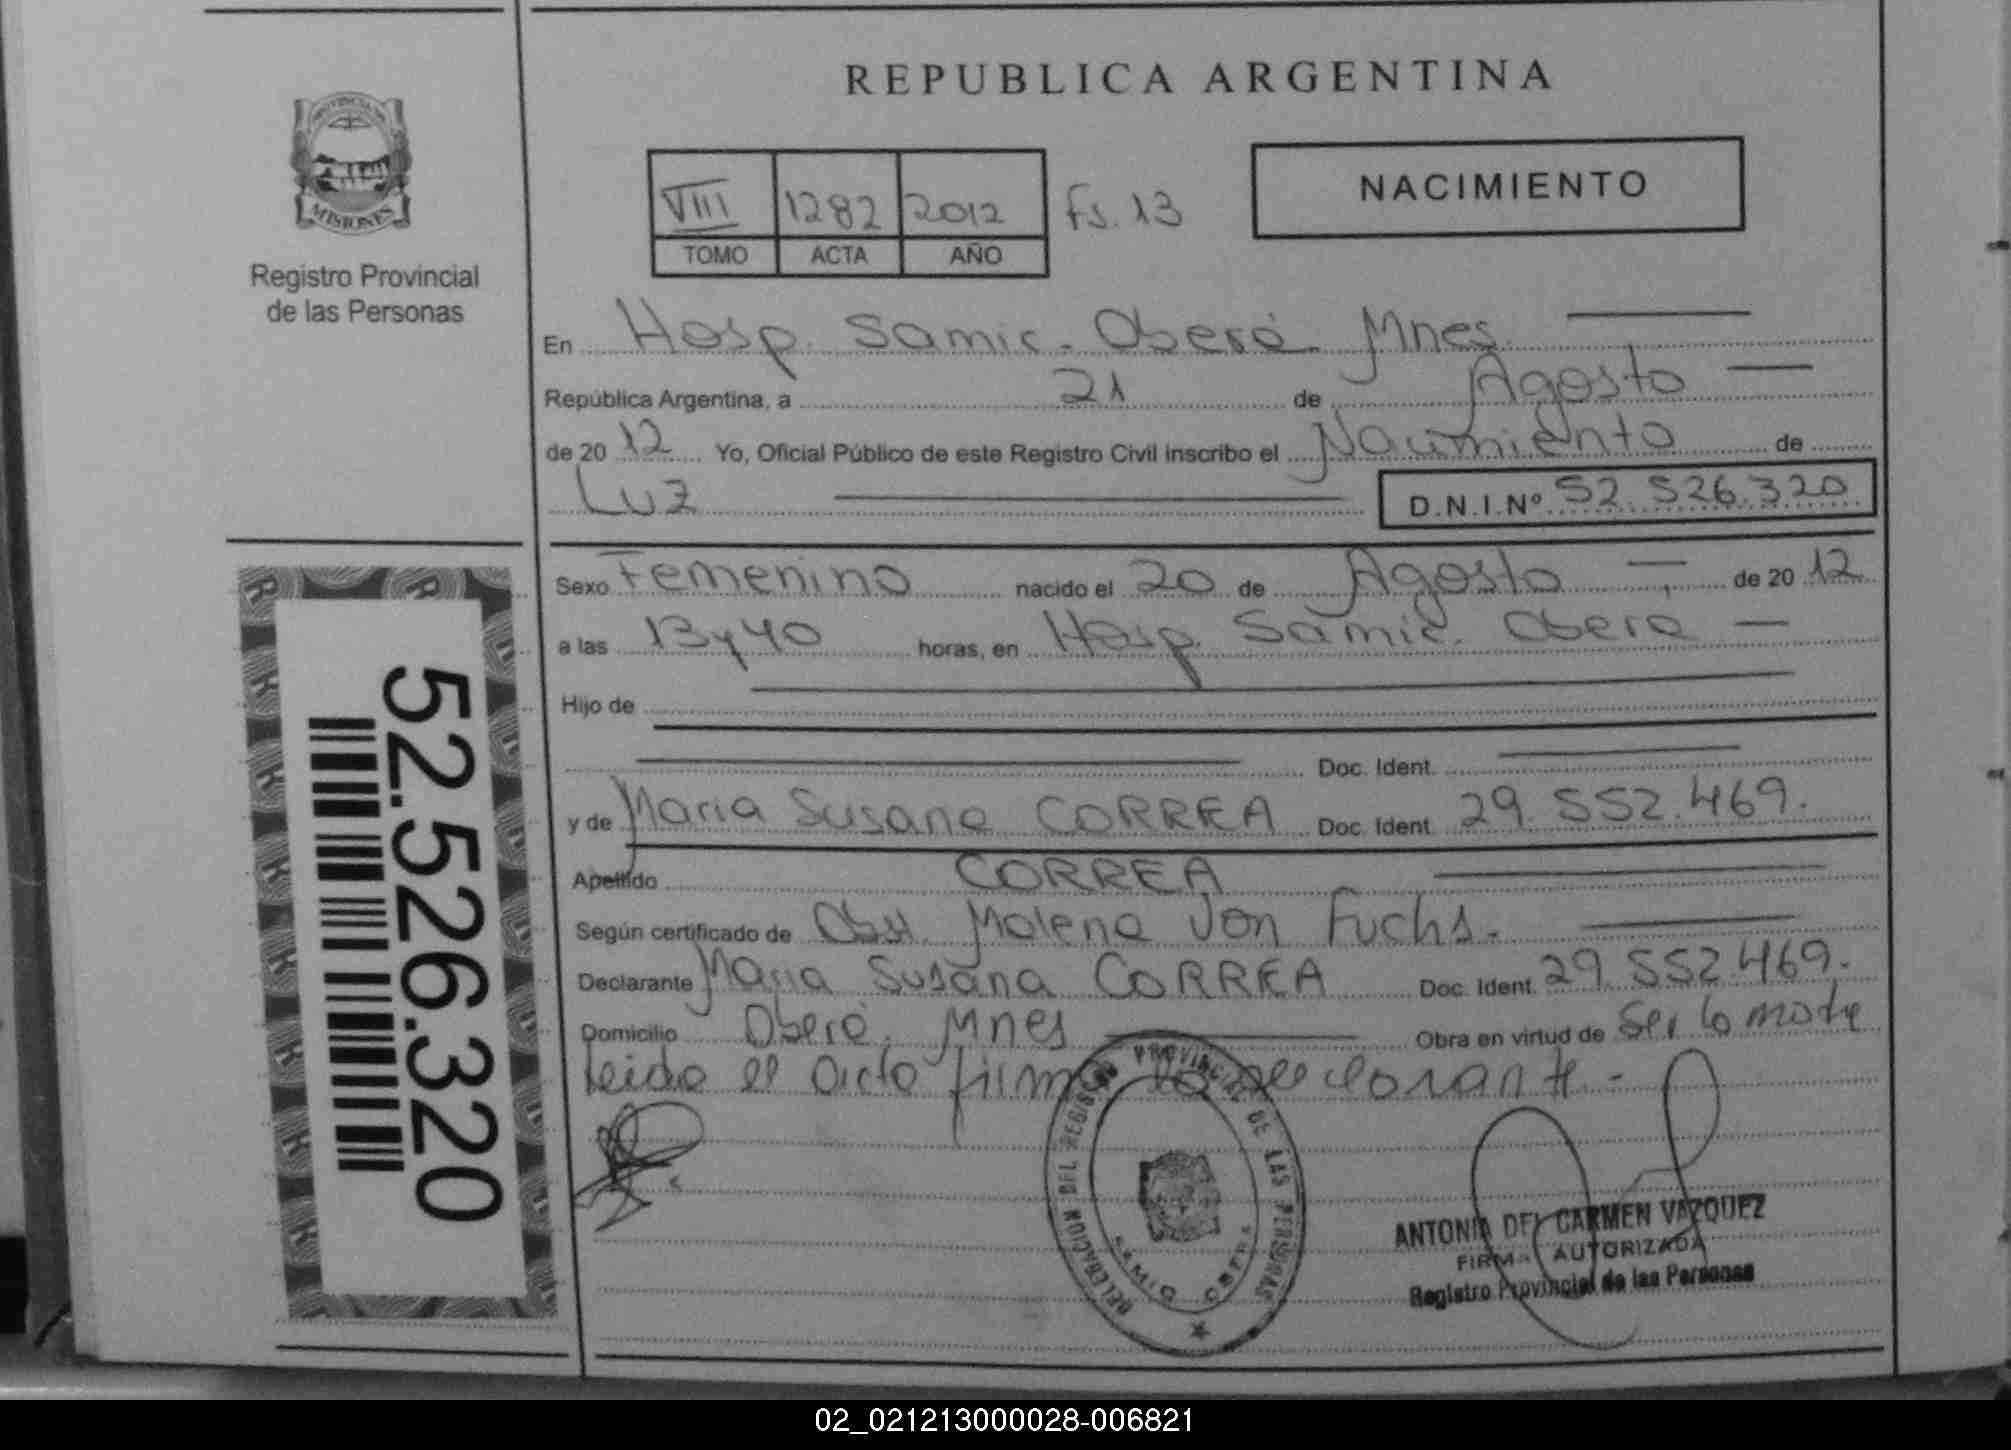 REPUBLICA ARGENTINA
PROVINCIA DE
MISIONES
Registro Provincial
de las Personas
VIII 1282 2012 Fs. 13
TOMO ACTA AÑO
NACIMIENTO
En Hosp. Samic. Oberá. Mnes.
República Argentina, a 21 de Agosto
de 2012 Yo, Oficial Público de este Registro Civil inscribo el Nacimiento de
Luz D.N.I.Nº 52.526.320
Sexo Femenino nacido el 20 de Agosto de 2012
a las 13 y 40 horas, en Hosp. Samic. Obera
Hijo de
Doc. Ident.
y de Maria Susana CORREA Doc. Ident. 29.552.469.
Apellido CORREA
Según certificado de Obst. Malena Von Fuchs.
Declarante Maria Susana CORREA Doc. Ident. 29.552.469.
Domicilio Oberá. Mnes Obra en virtud de Ser la madre
leido el acta firma la declarante.-
DELEGACION DEL REGISTRO PROVINCIAL DE LAS PERSONAS
SAMIC OBERA
ANTONIA DEL CARMEN VAZQUEZ
FIRMA AUTORIZADA
Registro Provincial de las Personas
52.526.320
02_021213000028-006821